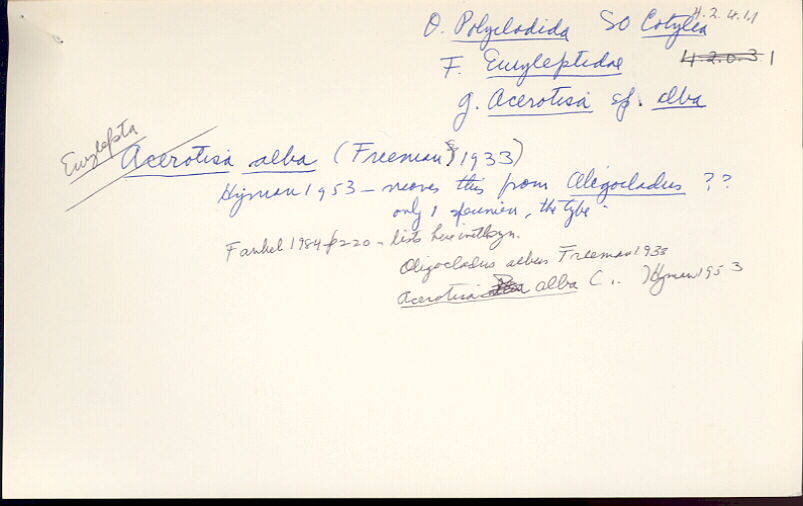 4.2.4.1.1
O. Polycladida SO Cotylea
F. Euryleptidae 4.2.0.3.1
g. Acerotisa sp. alba
Eurylepta
Acerotisa alba (Freeman, 1933)
Hyman 1953 - moves this from Oligocladus ??
only 1 specimen, the type
1984 p220 - lists here
Oligocladus albus Freeman 1933
Acerotisa alba ( ) Hyman 1953